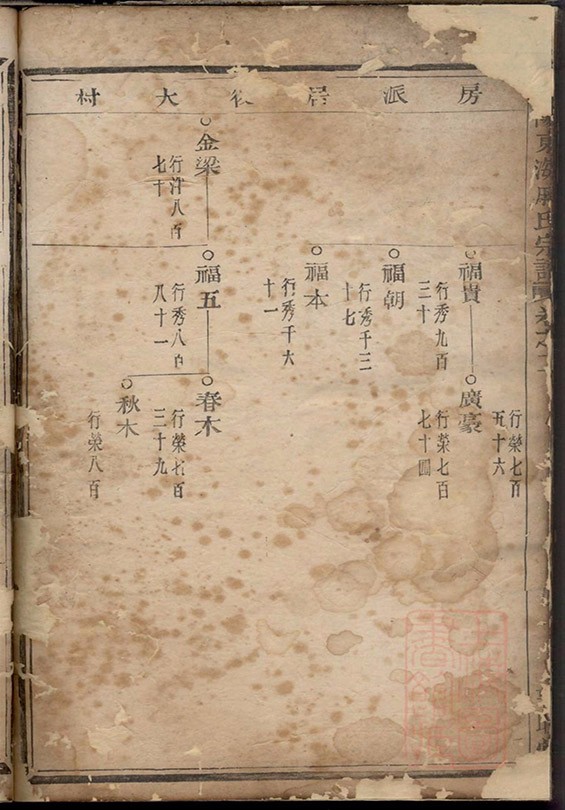 房派居後大村
東海
氏宗譜
行榮七百
五十六
福貴
行秀九百
三十
廣豪
行榮七百
七十四
福朝
行秀千三
十七
福本
行秀千六
十一
金梁
行洋八百
七十
福五
行秀八百
八十一
春木
行榮七百
三十九
秋木
行榮八百